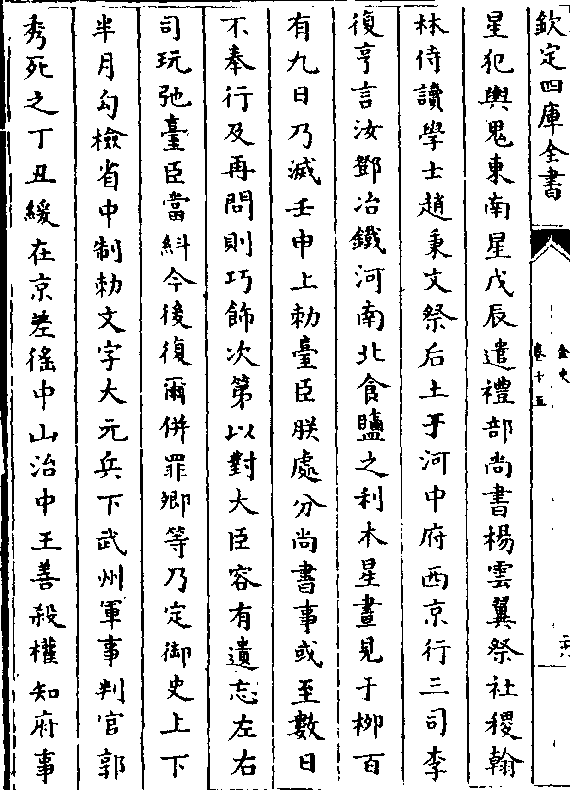 欽定四庫全書
金史
卷十五
星犯輿鬼東南星戊辰遣禮部尚書楊雲翼祭社稷翰
林侍讀學士趙秉文祭后土于河中府西京行三司李
復亨言汝鄧冶鐵河南北食鹽之利木星晝見于柳百
有九日乃滅壬申上勅臺臣朕處分尚書事或至數日
不奉行及再問則巧飾次第以對大臣容有遺忘左右
司玩弛臺臣當糾今後復爾併罪卿等乃定御史上下
半月勾檢省中制勅文字大元兵下武州軍事判官郭
秀死之丁丑緩在京差徭中山治中王善殺權知府事